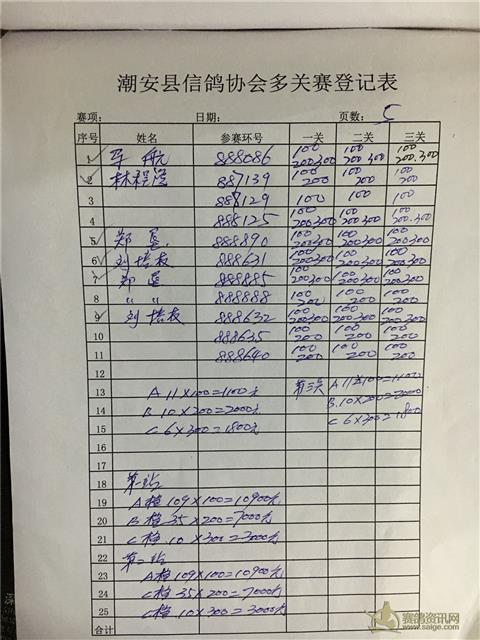 潮安县信鸽协会多关赛登记表
赛项: 日期: 页数: 5
序号 姓名 参赛环号 一关 二关 三关
1 军航 888086 100 200.300 100 200.300 100 200.300
2 林 887139 100 200 100 200 100 200
3 888129 100 100 100
4 888125 100 200.300 100 200.300 100 200.300
5 郑 888890 100 200.300 100 200.300 100 200.300
6 刘培 888631 100 200.300 100 200.300 100 200.300
7 郑 888885 100 200.300 100 200.300 100 200.300
8 〃 〃 888888 100 200 100 200 100 200
9 刘培 888632 100 200.300 100 200.300 100 200.300
10 888635 100 200 100 200 100 200
11 888640 100 200 100 200 100 200
12
13 A 11×100=1100元 第三次 A 11×100=1100
14 B 10×200=2000元 B.10×200=2000
15 C 6×300=1800元 C 6×300=1800
16
17
18 第一站
19 A档 109×100=10900元
20 B档 35×200=7000元
21 C档 10×300=3000元
22 第二站
23 A档 109×100=10900元
24 C档 35×200=7000元
25 C档 10×300=3000元
合计
赛鸽资讯网
www.saige.com